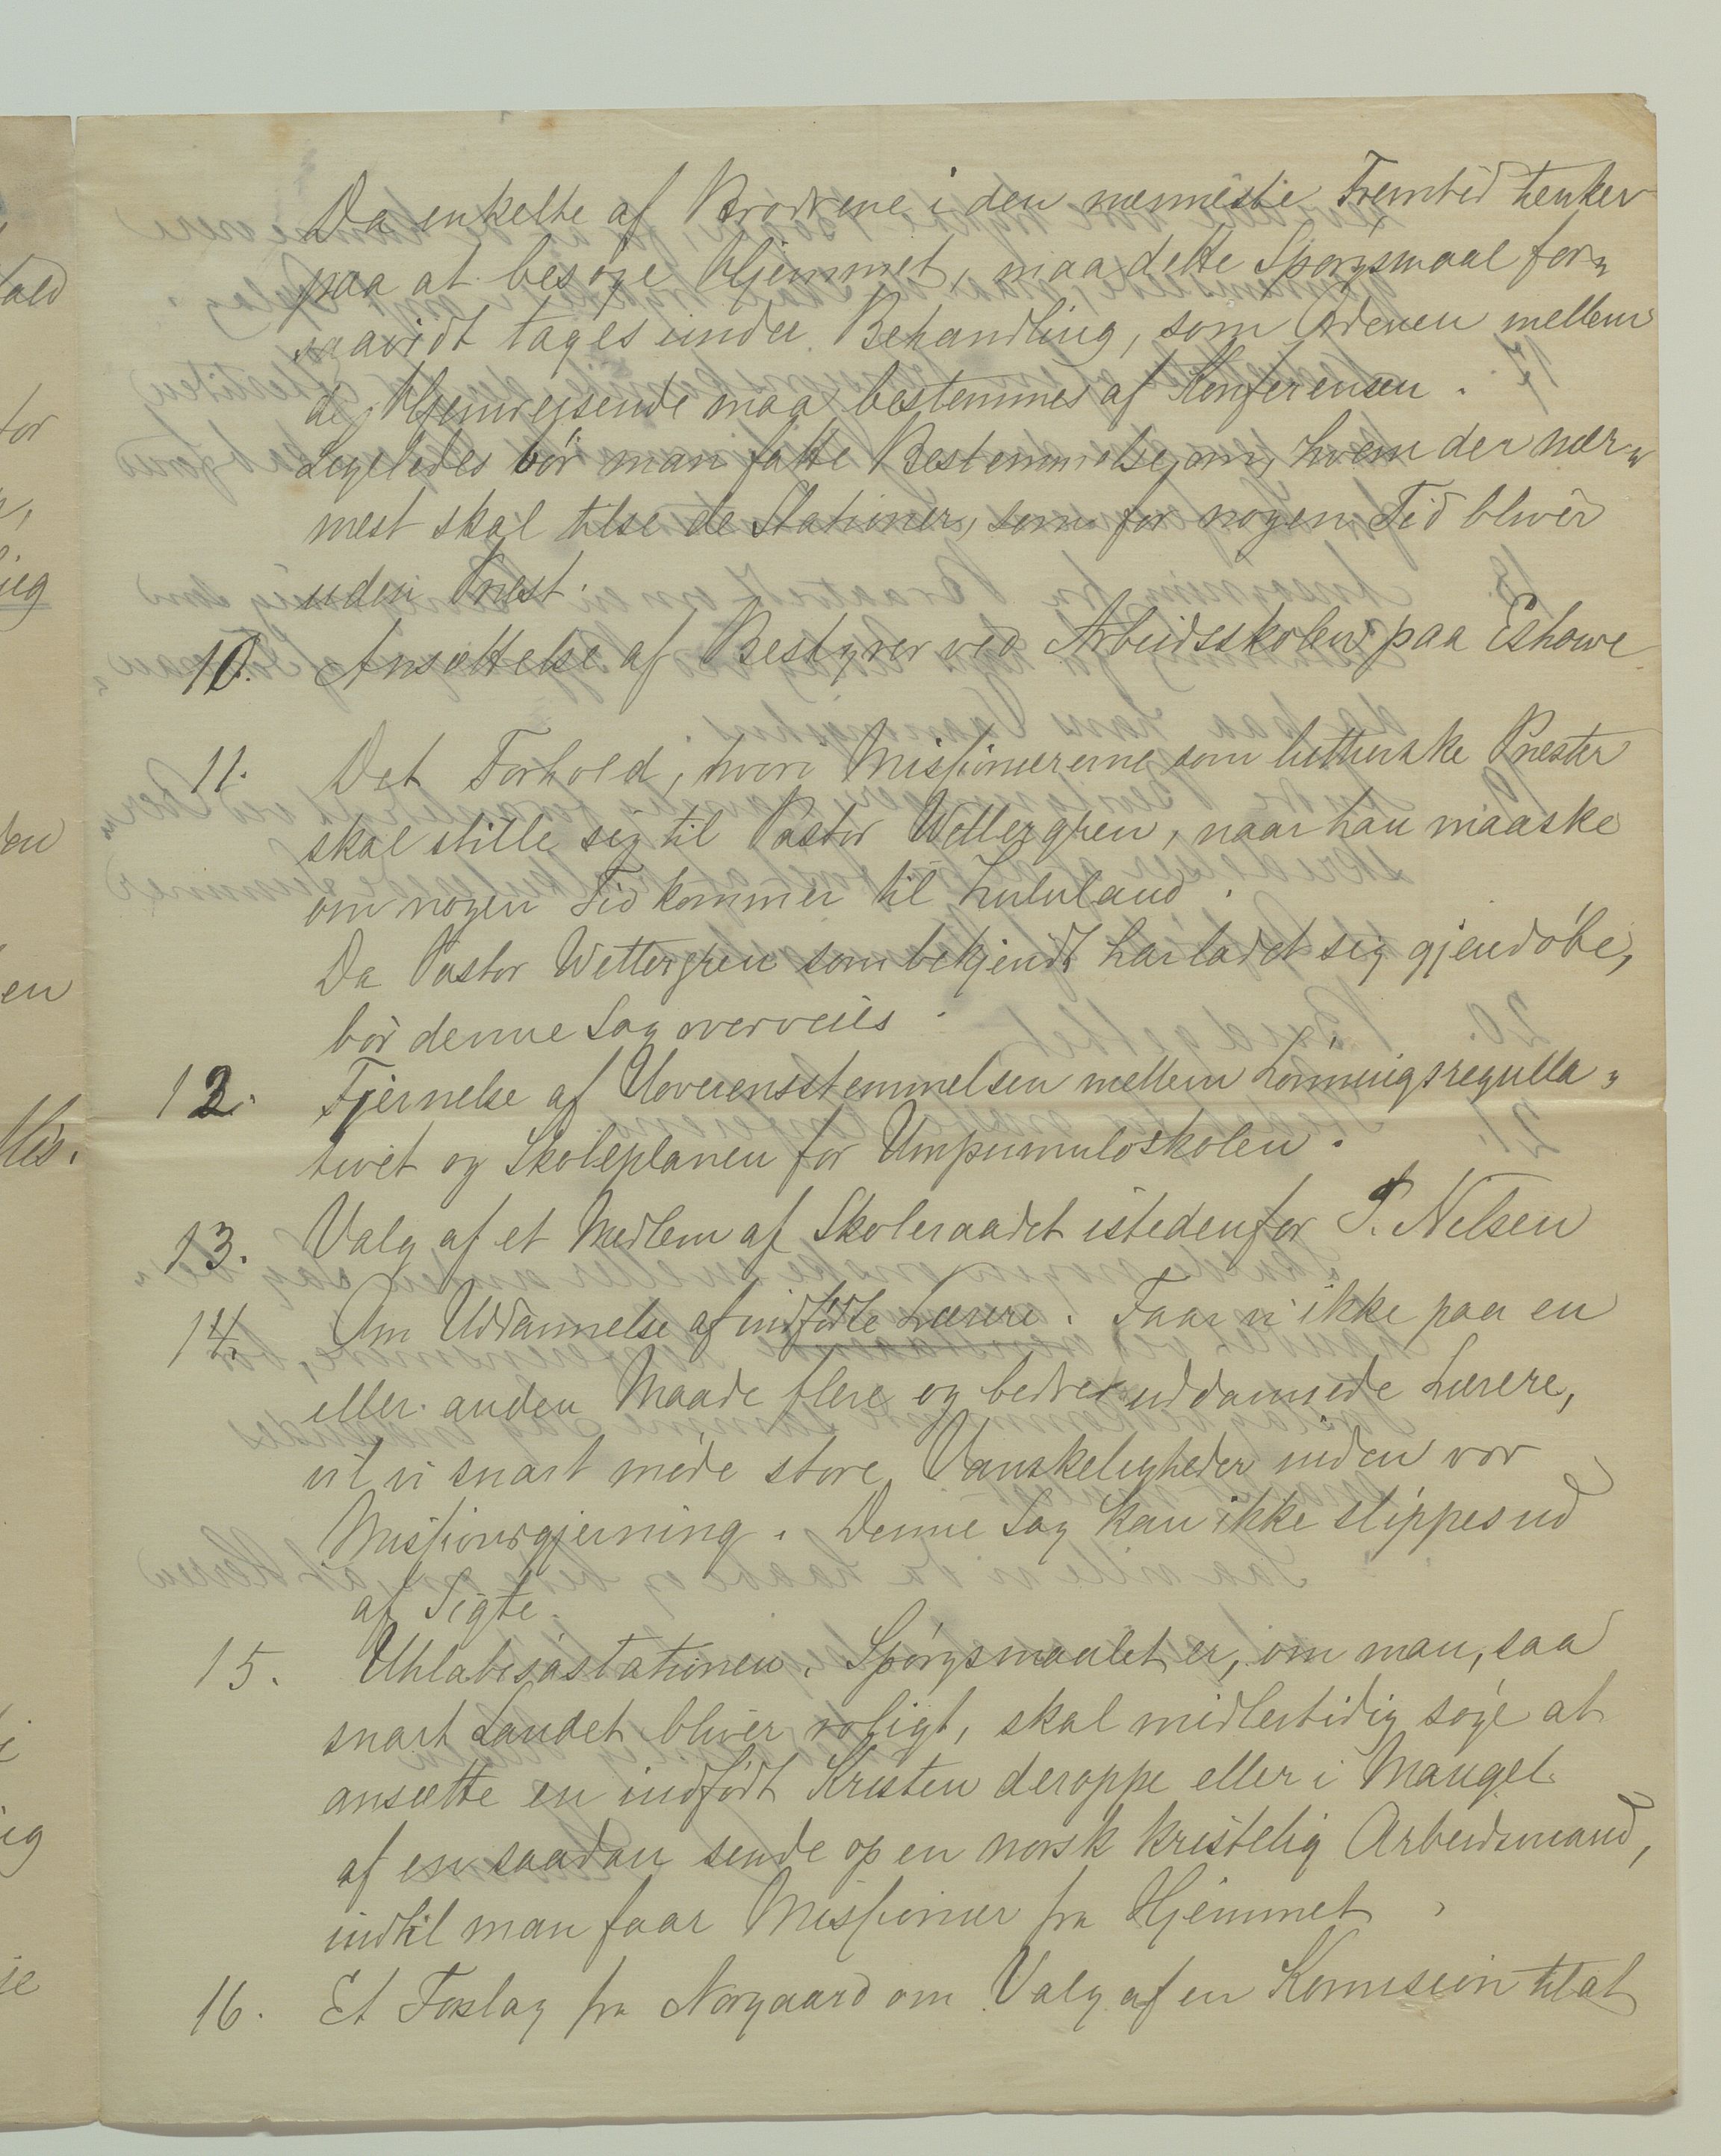 Da enkelte af Brødrene i den nærmeste Fremtid tenker
paa at besøge Hjemmet, maa dette Spørgsmaal for„
saavidt tages under Behandling, som Ordenen mellem
de Hjemreisende maa bestemmes af Konferensen.
Ligeledes bør man fatte Bestemmelse om, hvem der nær„
mest skal tilse de Stationer, som for nogen Tid bliver
uden Prest.
10. Ansættelse af Bestyrer ved Arbeidsskolen paa Eshowe
11. Det Forhold, hvori Missionærerne som lutherske Prester
skal stille sig til Pastor Wettergren, naar han maaske
om nogen Tid kommer til Zululand.
Da Pastor Wettergren som bekjendt har ladet sig gjendøbe,
bør denne Sag overveies.
12. Fjernelse af Uoverensstemmelsen mellem Lønningsregulla„
tivet og Skoleplanen for Umpumuloskolen.
13. Valg af et Medlem af Skoleraadet istedenfor P. Nilsen
14. Om Uddannelse af indfødte Lærere. Faar vi ikke paa en
eller anden Maade flere og bedre uddannede Lærere,
vil vi snart møde store Vanskeligheder inden vor
Missionsgjerning. Denne Sag kan ikke slippes ud
af Sigte.
15. Uhlabisastationen. Spørgsmaalet er, om man, saa
snart Landet bliver roligt, skal midlertidig søge at
ansætte en indfødt Kristen deroppe eller i Mangel
af en saadan sende op en norsk kristelig Arbeidsmand,
indtil man faar Missionær fra Hjemmet.
16. Et Forslag fra Norgaard om Valg af en Komision til at